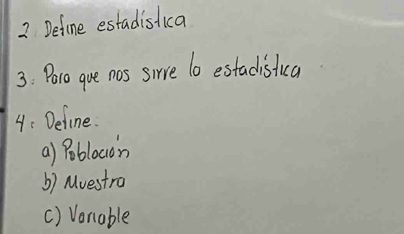 2. Define estadística
3. Para que nos sirve la estadística
4. Define:
a) Población
b) Muestra
c) Variable